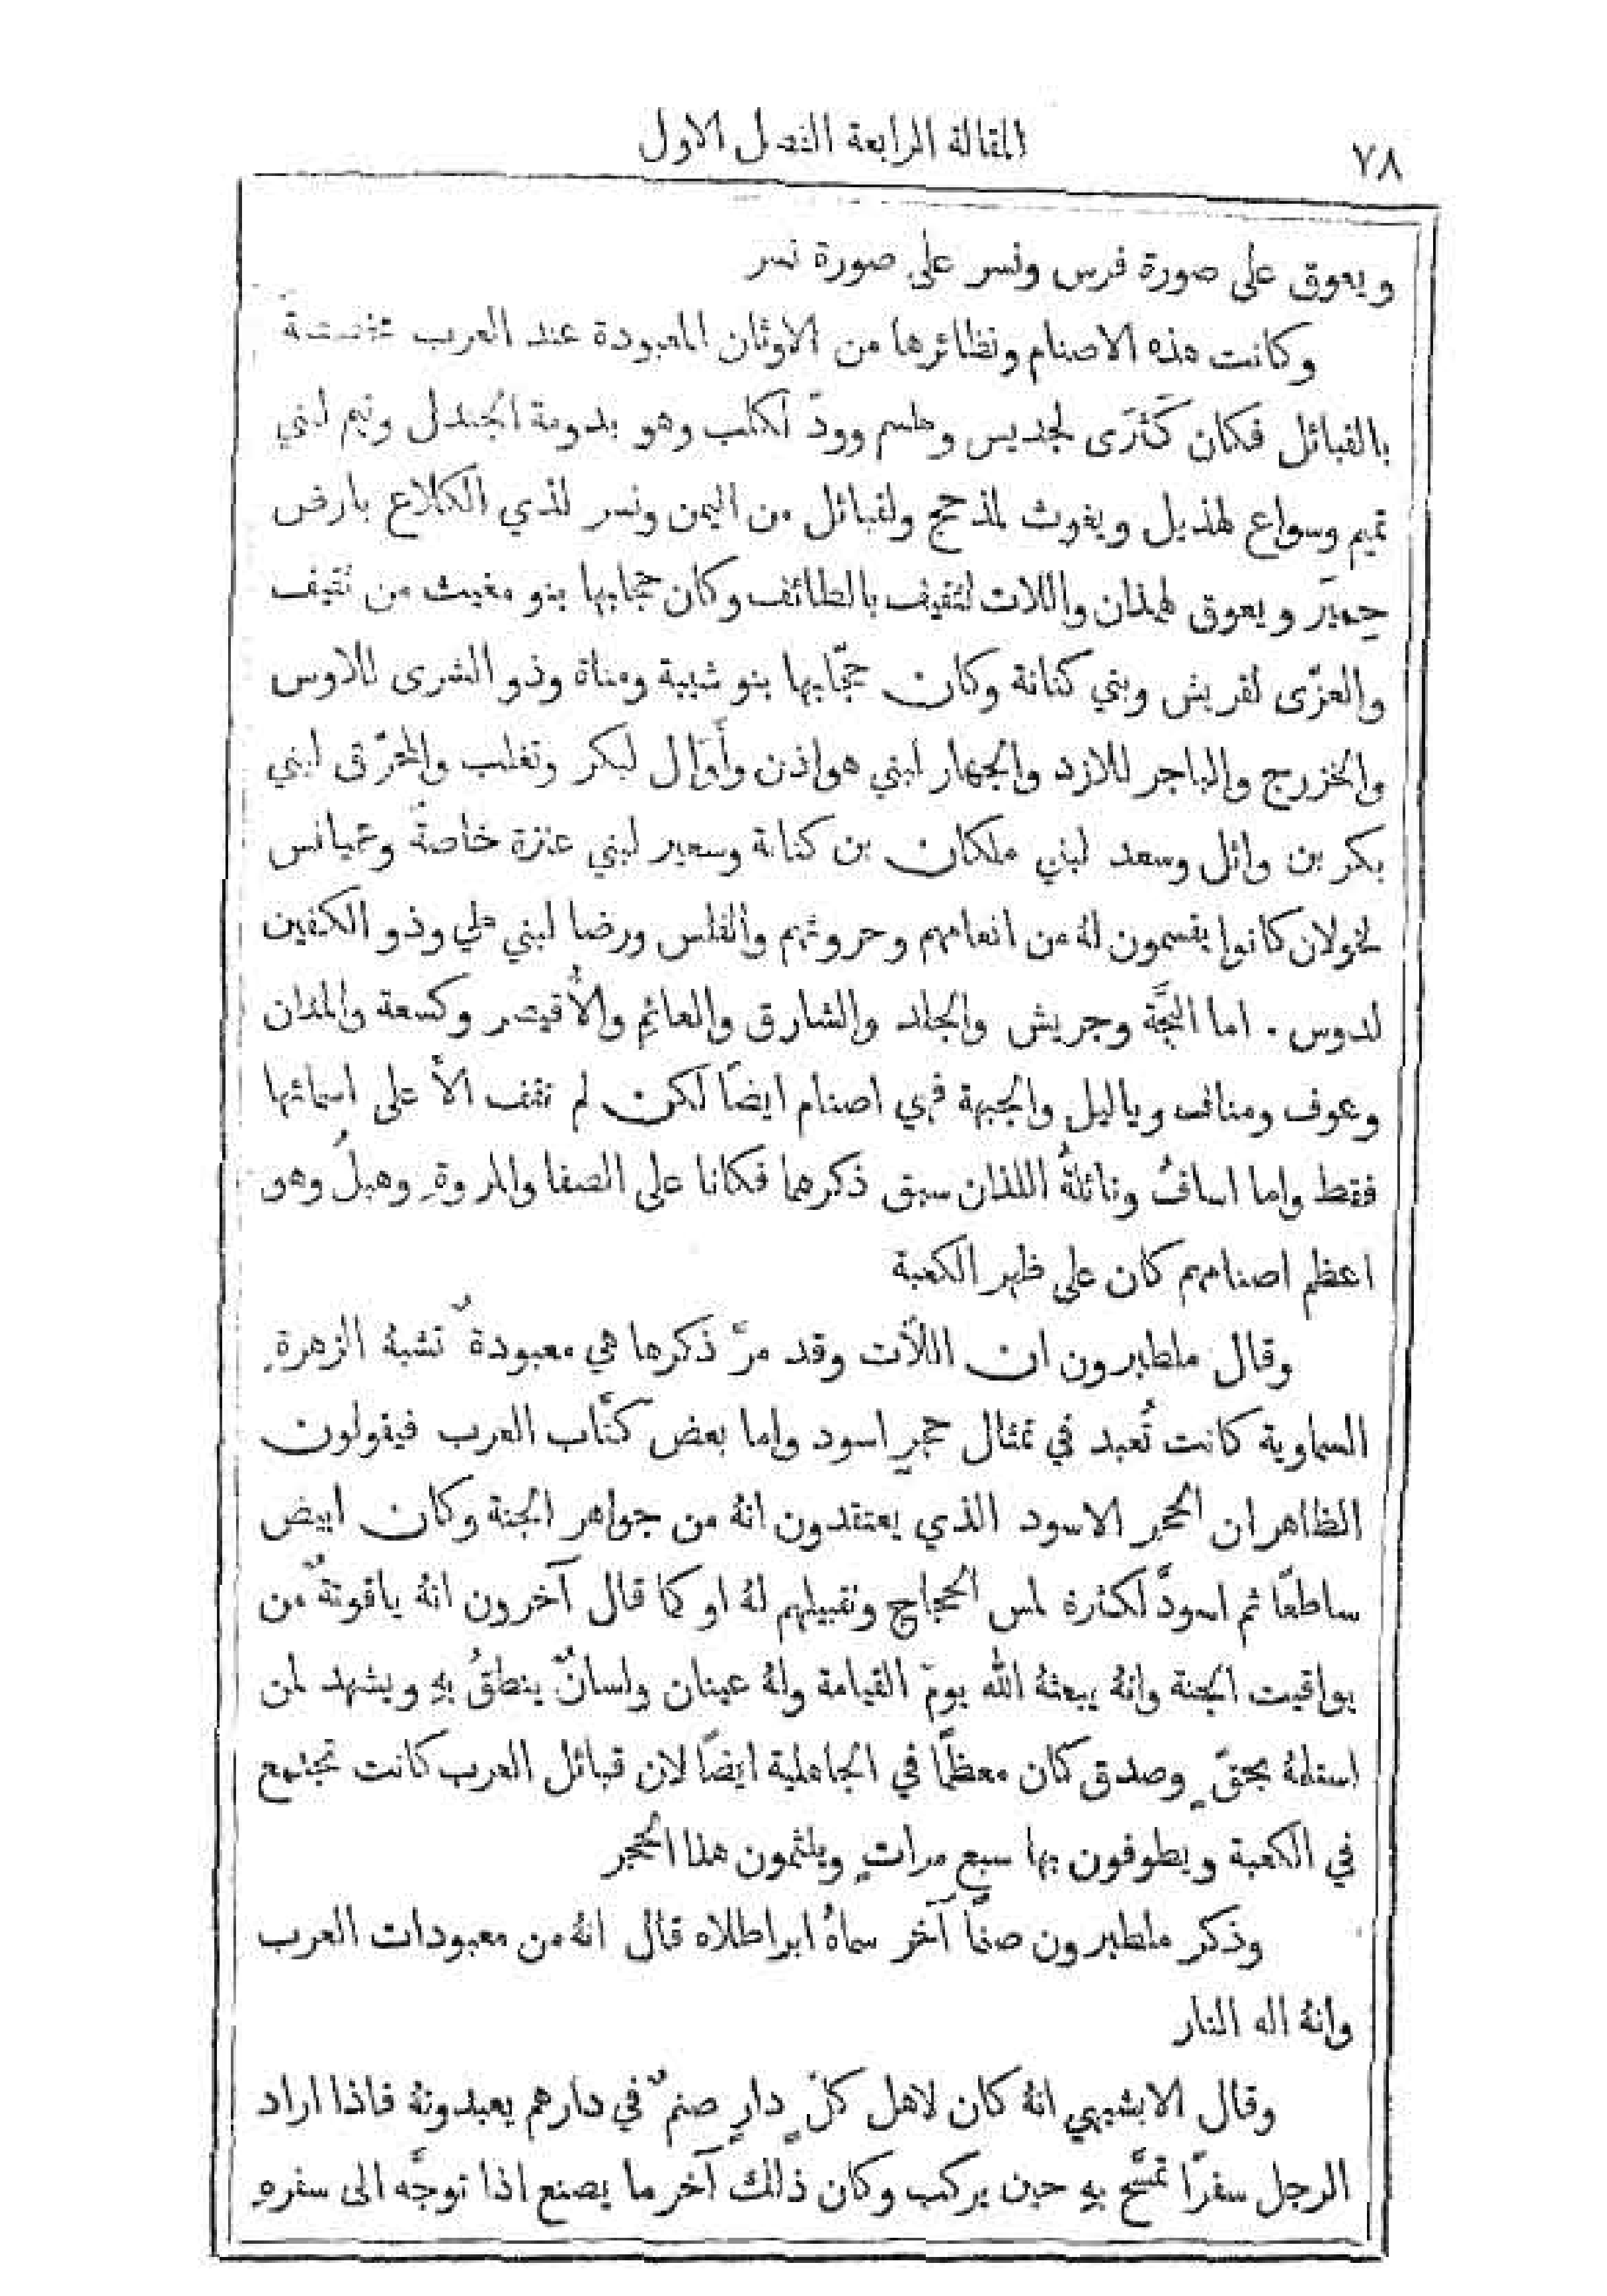 ٧٨
المقالة الرابعة الفصل الاول
ويعوق على صورة فرس ونسر على صورة نسر
وكانت هذه الاصنام ونظائرها من الاوثان المعبودة عند العرب مخصصةً
بالقبائل فكان كَثرَى لجديس وطسم وودّ لكلب وهو بدومة الجندل وتيم لبني
تميم وسواع لهذيل ويغوث لمذحج ولقبائل من اليمن ونسر لذي الكلاع بارض
حِميَر ويعوق لهمذان واللات لثقيف بالطائف وكان حجابها بنو مغيث من ثقيف
والعزّى لقريش وبني كنانة وكان حجّابها بنو شيبة ومناة وذو الشرى للاوس
والخزرج والباجر للازد والجهار لبني هواذن وأُوَال لبكر وتغلب والمحرّق لبني
بكر بن وائل وسعد لبني ملكان بن كنانة وسعير لبني عنزة خاصةً وعميانس
لخولان كانوا يقسمون لهُ من انعامهم وحروثهم والفلس ورضا لبني طي وذو الكفين
لدوس . اما البجَّة وجريش والجلد والشارق والعائم والأُقيصر وكسعة والمدان
وعوف ومناف وياليل والجبهة فهي اصنام ايضًا لكن لم نقف الاَّ على اسمائها
فقط واما اسافُ ونائلةُ اللذان سبق ذكرهما فكانا على الصفا والمروةِ وهبلُ وهو
اعظم اصنامهم كان على ظهر الكعبة
وقال ملطبرون ان اللاَّت وقد مرَّ ذكرها هي معبودةٌ تشبهُ الزهرةِ
السماوية كانت تُعبد في تمثال حجرٍ اسود واما بعض كتَّاب العرب فيقولون
الظاهران الحجر الاسود الذي يعتقدون انهُ من جواهر الجنة وكان ابيض
ساطعًا ثم اسودَّ لكثرة لمس الحجاج وتقبيلهم لهُ او كما قال آخرون انهُ ياقوتةٌ من
يواقيت الجنة وانهُ يبعثهُ الله يومَ القيامة ولهُ عينان ولسانٌ ينطقُ بهِ ويشهد لمن
استلمهُ بحقّ ٍ وصدق كان معظَّمًا في الجاهلية ايضًا لان قبائل العرب كانت تجتمع
في الكعبة ويطوفون بها سبع مراتٍ ويلثمون هذا الحجر
وذكر ملطبرون صنمًا آخر سماهُ ابراطلاه قال انهُ من معبودات العرب
وانهُ اله النار
وقال الابشيهي انهُ كان لاهل كلّ ٍ دارٍ صنمٌ في دارهم يعبدونهُ فاذا اراد
الرجل سفرًا تمسَّح بهِ حين يركب وكان ذلك آخر ما يصنع اذا توجَّه الى سفرهِ